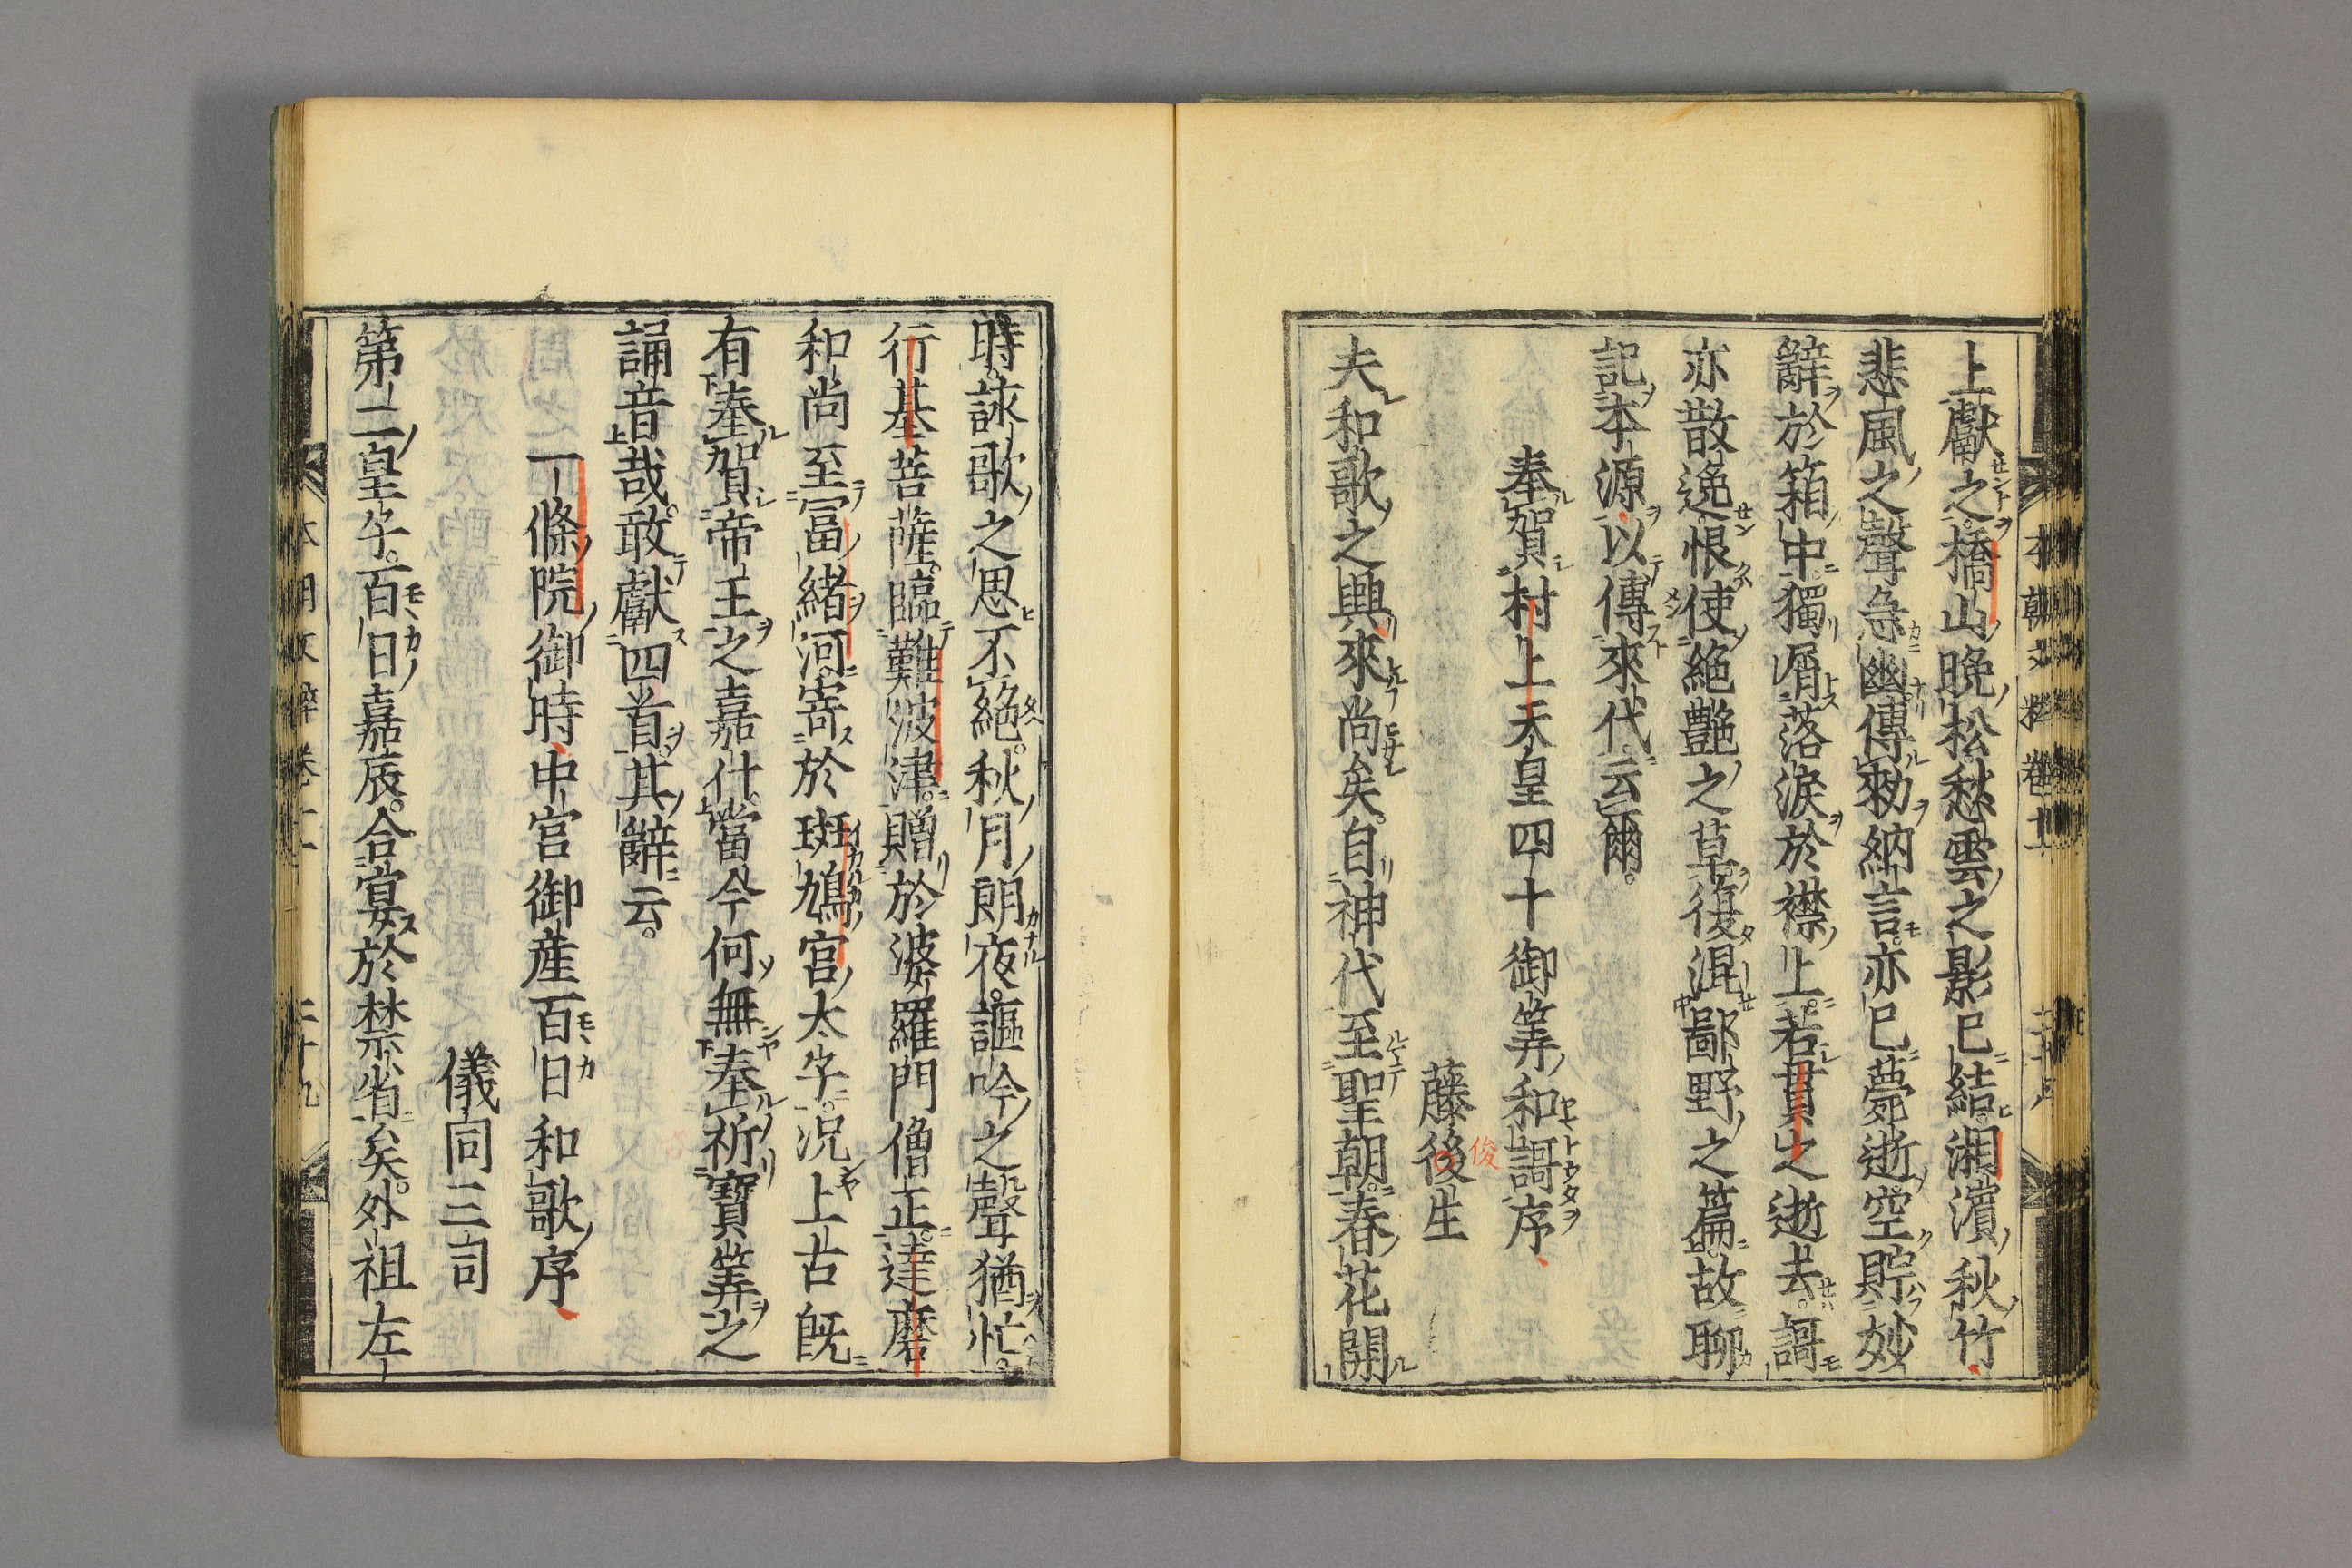 上獻之橋山晩松愁雲之影已結湘濵秋竹
悲風之聲忽幽傳勅納言亦已薨逝空貯妙
辭於箱中獨屑落淚於襟上若貫之逝去謌
亦散逸恨使絕艶之草復混鄙野之篇故聊
記本源以傳來代云爾
奉賀村上天皇四十御筭和謌序
藤後生
俊
夫和歌之興來尚矣自神代至聖朝春花開
時詠歌之思不絕秋月朗夜謳吟之聲猶忙
行基菩薩臨難波津贈於婆羅門僧正達磨
和尚至冨緖河寄於斑鳩宮太子況上古旣
有奉賀帝王之嘉什當今何無奉祈寶筭之
誦音哉敢獻四首其辭云
一條院御時中宮御産百日和歌序
儀同三司
第二皇子百日嘉辰合宴於禁省矣外祖左